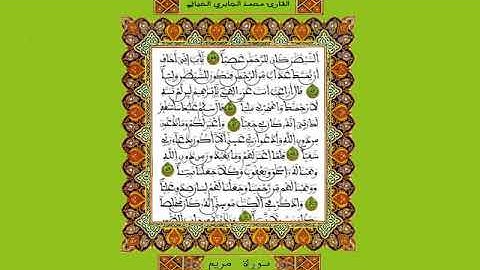 القارئ محمد الجابري الحياني
الشيطن كان للرحمن عصيا يأبت إني أخاف
أن يمسك عذاب من الرحمن فتكون للشيطن وليا
قال أراغب أنت عن ءالهتي يإبرهيم لئن لم تنته
لأرجمنك واهجرني مليا قال سلم عليك سأستغفر
لك ربي إنه كان بي حفيا وأعتزلكم وما تدعون
من دون الله وأدعوا ربي عسى ألا أكون بدعاء ربي
شقيا فلما اعتزلهم وما يعبدون من دون الله
وهبنا له إسحق ويعقوب وكلا جعلنا نبيئا
ووهبنا لهم من رحمتنا وجعلنا لهم لسان صدق عليا
واذكر في الكتب موسى إنه كان مخلصا
سورة مريم